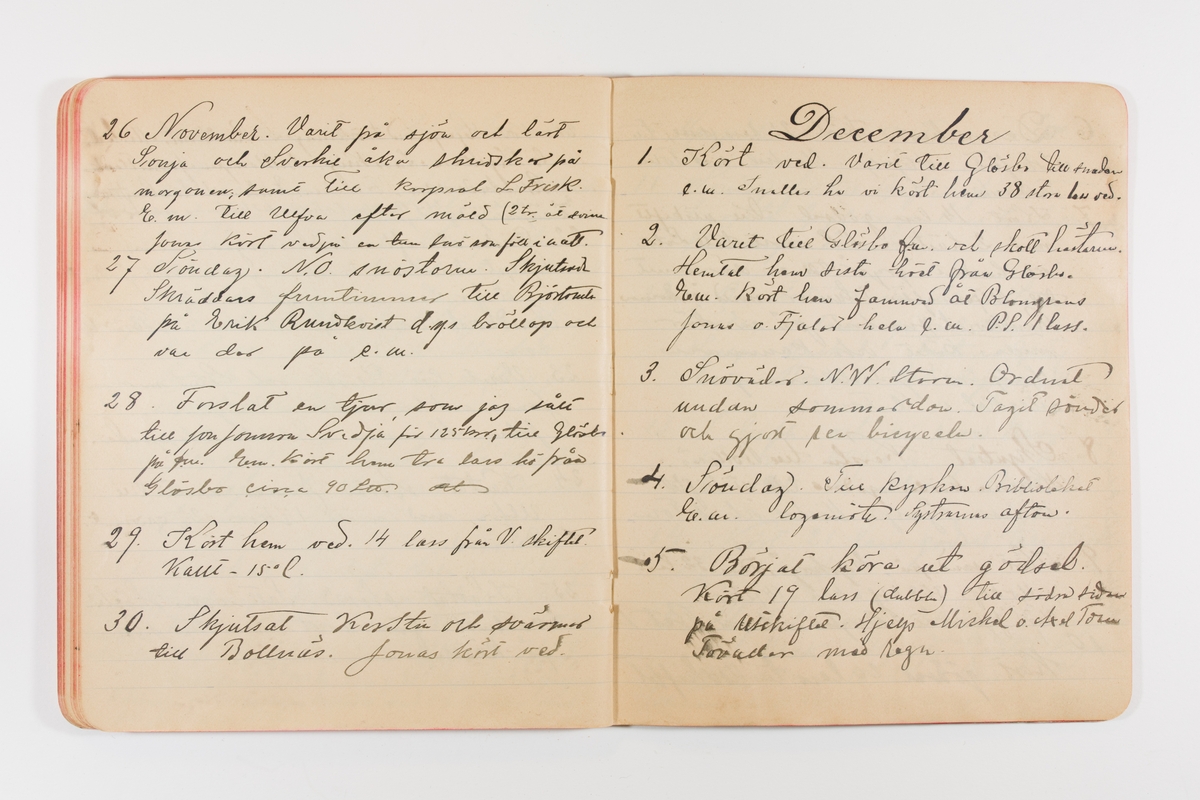 26 November. Varit på sjön och lärt
Sonja och Sverkil åka skridskor på
morgonen, samt till korpral L Frisk.
E.m. till Ulfva efter mäld (2 tr. åt svinen
Jonas kört ved på en snö som föll i natt.
27 Söndag. N.O. snöstorm. Skjutsade
Skräddars fruntimmer till
på Erik Rundkvist d.y:s bröllop och
var der på e.m.
28. Forslat en tjur, som jag sålt
till Jon Jonsson Svedja för 125 kr, till Glösbo
på fm. Em. Kört hem tre lass hö från
Glösbo circa 90
29. Kört hem ved. 14 lass från V. skiftet.
Kallt - 15° C.
30. Skjutsat Kerstin och svärmor
till Bollnäs. Jonas kört ved.
December
1. Kört ved. Varit till Glösbo till smeden
e.m. Inalles ha vi kört hem 38 stora lass ved.
2. Varit till Glösbo fm. och skott hästarne.
Hemtat hem sista höet från Glösbo.
Em. Kört hem famnved åt Blomgrens
Jonas o. Fjalar hela e.m. P.S. 1 lass.
3. Snöväder. N.W. storm. Ordnat
undan sommardon. Tagit sönder
och gjort ren bicyceln.
4. Söndag. Till kyrkan. Biblioteket
E.m. logemöte. Systrarnas afton.
5. Börjat köra ut gödsel.
Kört 19 lass (dubbla) till södra sidan
på Utskiftet. Hjelp Mickel o. Axel
Töväder med regn.